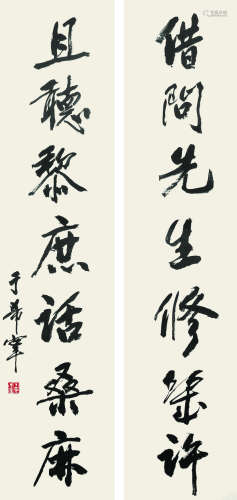 借問先生修幾許
且聽黎庶話桑麻
于希寧